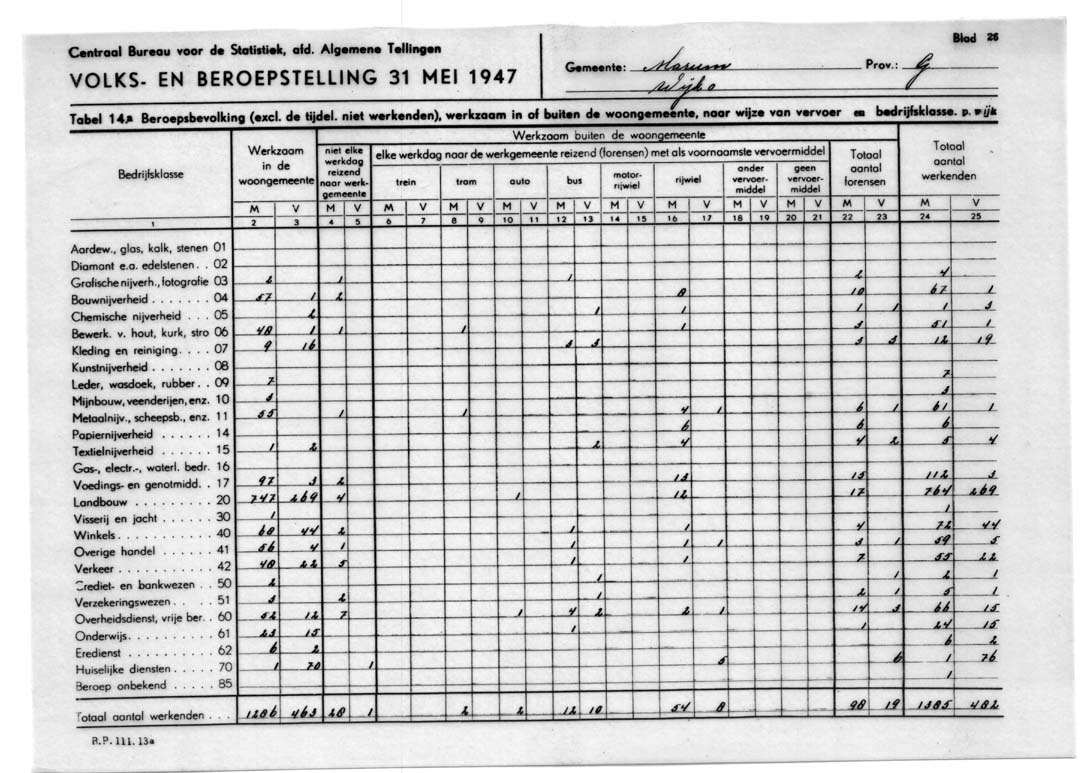 Centraal Bureau voor de Statistiek, afd. Algemene Tellingen
Blad 26
VOLKS- EN BEROEPSTELLING 31 MEI 1947
Gemeente: Marum Prov.: G
Wijk
Tabel 14.a Beroepsbevolking (excl. de tijdel. niet werkenden), werkzaam in of buiten de woongemeente, naar wijze van vervoer en bedrijfsklasse. p. wijk
Bedrijfsklasse
Werkzaam in de woongemeente
Werkzaam buiten de woongemeente
niet elke werkdag reizend naar werkgemeente
elke werkdag naar de werkgemeente reizend (forensen) met als voornaamste vervoermiddel
trein tram auto bus motor-rijwiel rijwiel ander vervoer-middel geen vervoer-middel
Totaal aantal forensen
Totaal aantal werkenden
M V M V M V M V M V M V M V M V M V M V M V M V
1 2 3 4 5 6 7 8 9 10 11 12 13 14 15 16 17 18 19 20 21 22 23 24 25
Aardew., glas, kalk, stenen 01
Diamant e.a. edelstenen . . 02
Grafische nijverh., fotografie 03 2 1 1 2 4
Bouwnijverheid . . . . . . . 04 57 1 2 8 10 67 1
Chemische nijverheid . . . 05 2 1 1 1 1 1 3
Bewerk. v. hout, kurk, stro 06 48 1 1 1 1 3 51 1
Kleding en reiniging. . . . 07 9 16 3 3 3 3 12 19
Kunstnijverheid . . . . . . . 08
Leder, wasdoek, rubber . . 09 7 7
Mijnbouw, veenderijen, enz. 10 3 3
Metaalnijv., scheepsb., enz. 11 55 1 1 4 1 6 1 61 1
Papiernijverheid . . . . . . 14 6 6 6
Textielnijverheid . . . . . . 15 1 2 2 4 4 2 5 4
Gas-, electr.-, waterl. bedr. 16
Voedings- en genotmidd. . 17 97 3 2 13 15 112 3
Landbouw . . . . . . . . . 20 747 269 4 1 12 17 764 269
Visserij en jacht . . . . . . 30 1 1
Winkels . . . . . . . . . . . 40 68 44 2 1 1 4 72 44
Overige handel . . . . . . 41 56 4 1 1 1 1 3 1 59 5
Verkeer . . . . . . . . . . . 42 48 22 5 1 1 7 55 22
Crediet- en bankwezen . . 50 2 1 1 2 1
Verzekeringswezen. . . . . 51 3 2 1 2 1 5 1
Overheidsdienst, vrije ber. . 60 52 12 7 1 4 2 2 1 14 3 66 15
Onderwijs. . . . . . . . . . 61 23 15 1 1 24 15
Eredienst . . . . . . . . . . 62 6 2 6 2
Huiselijke diensten . . . . . 70 1 70 1 5 6 1 76
Beroep onbekend . . . . . 85 1
Totaal aantal werkenden . . . 1286 463 28 1 2 2 12 10 54 8 98 19 1385 482
R.P. 111. 13a